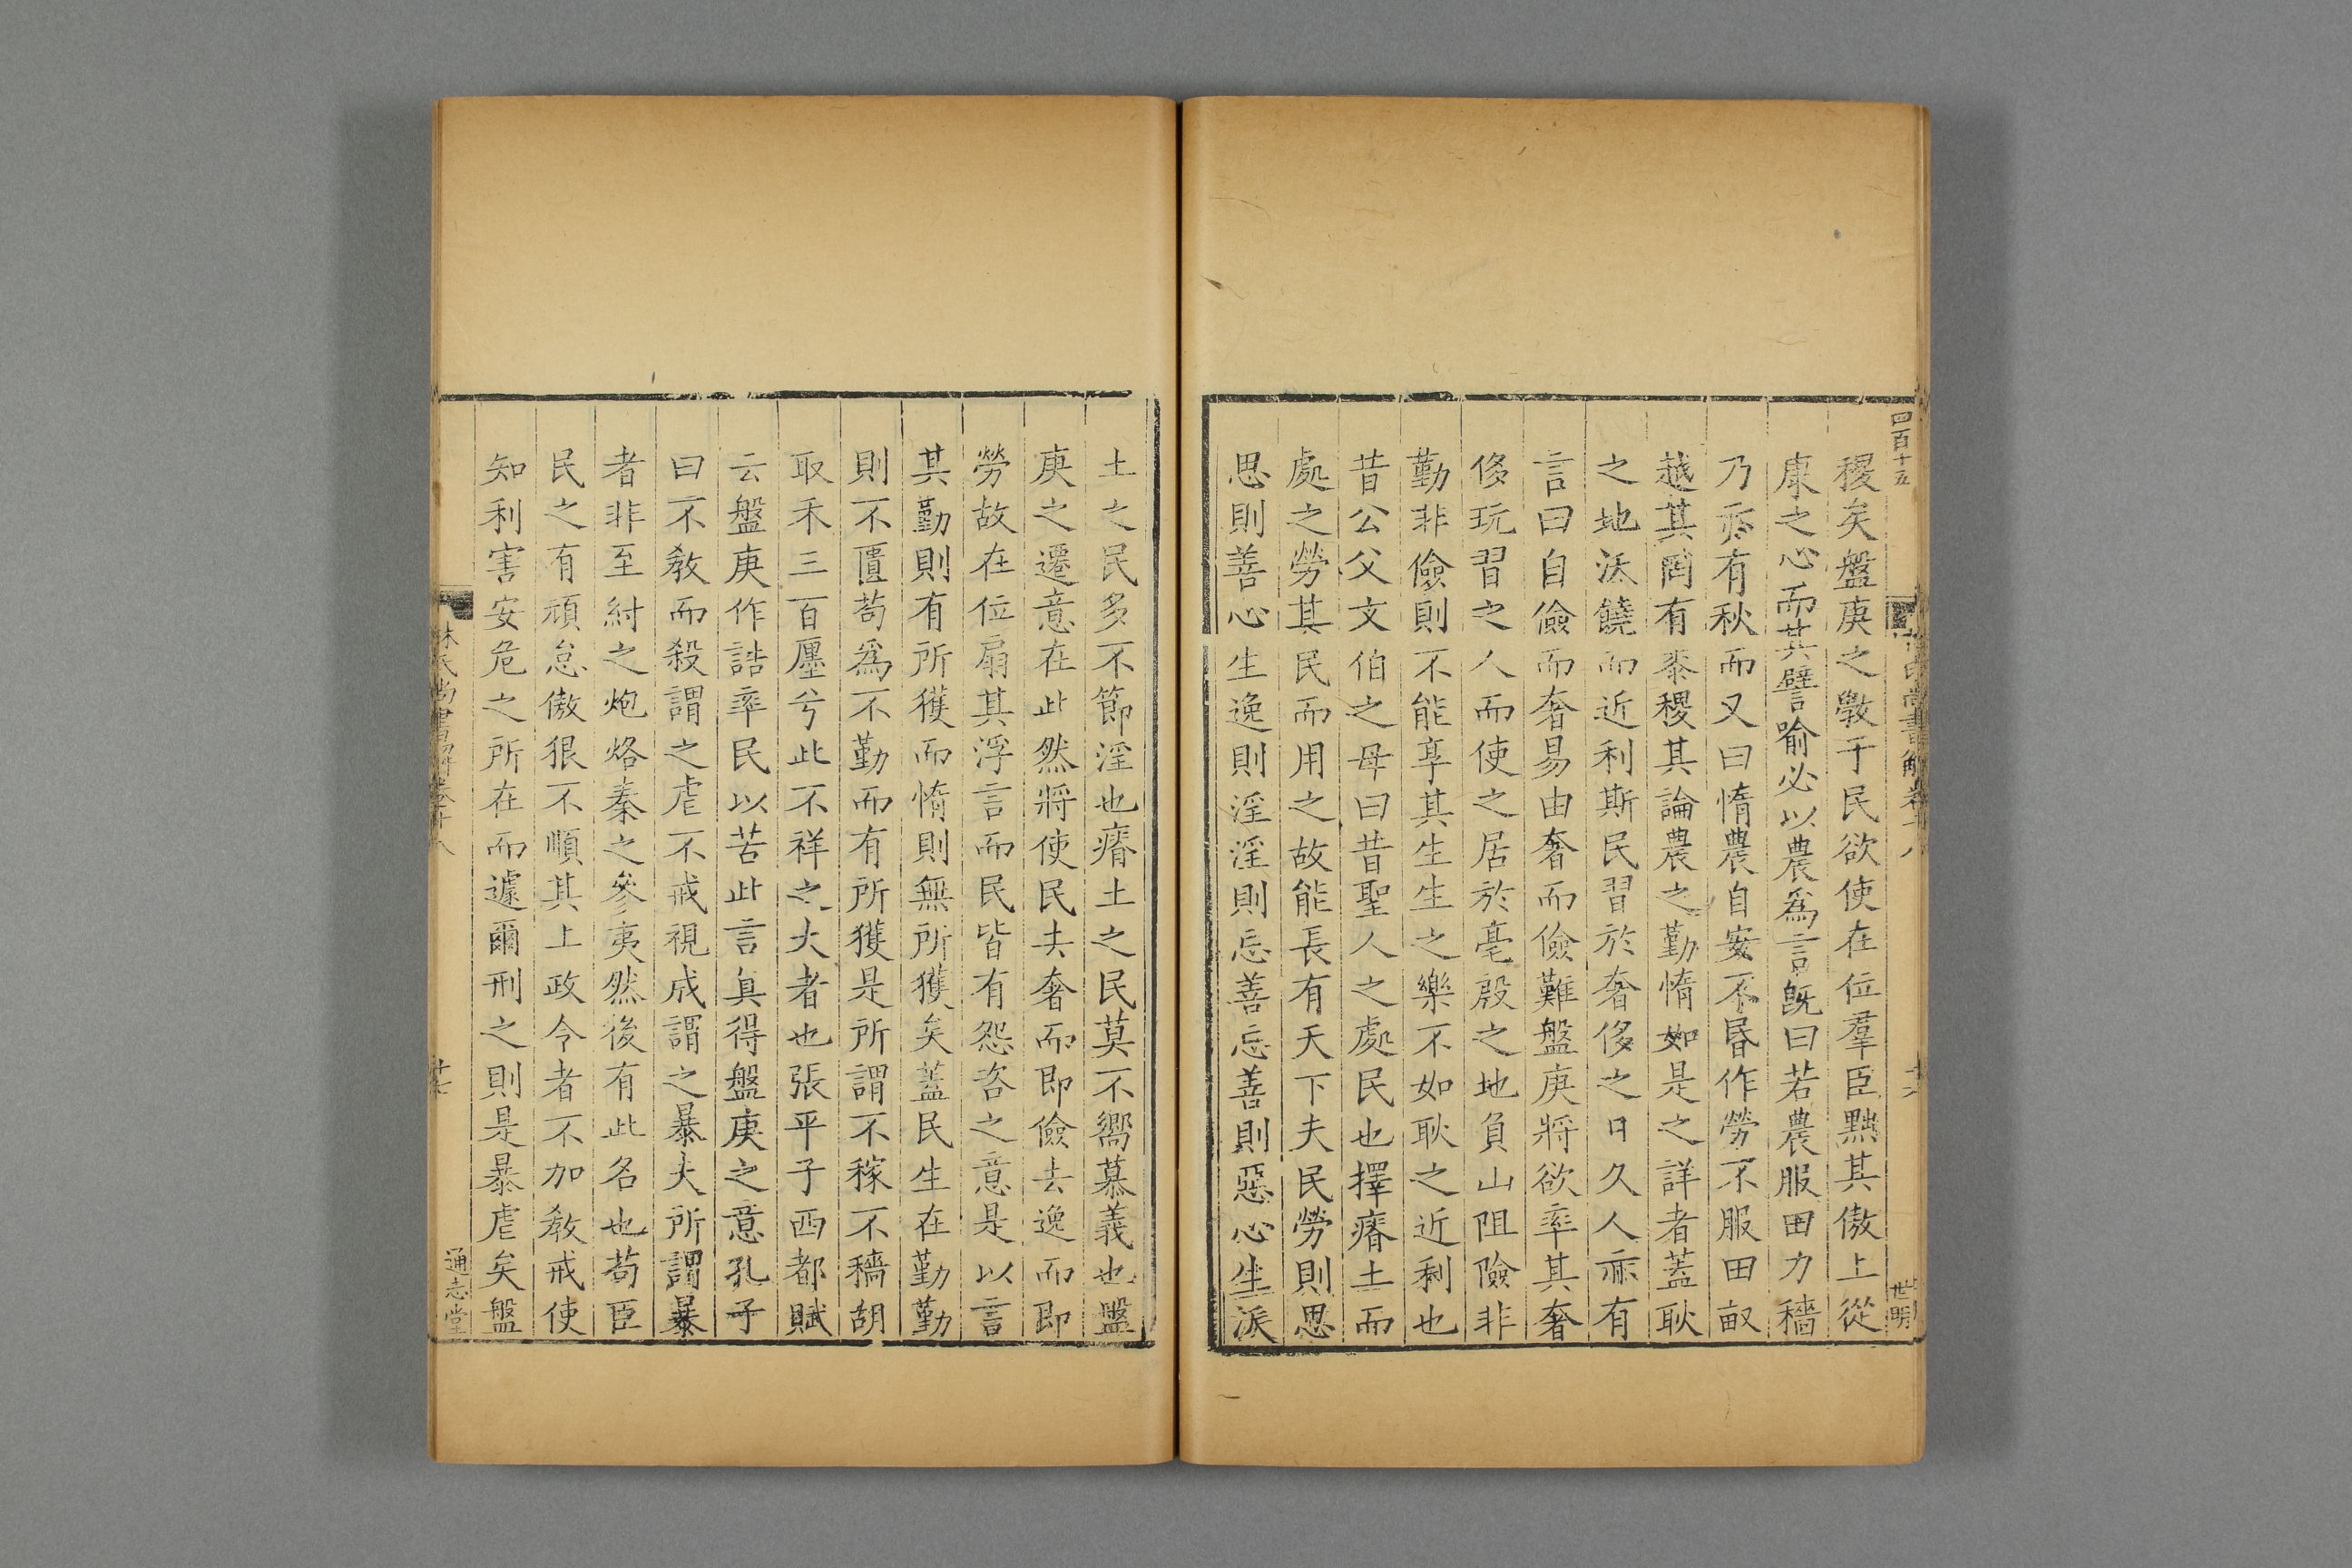 四百十五
稷矣盤庚之斆于民欲使在位羣臣黜其傲上從
康之心而其譬喻必以農爲言旣曰若農服田力穡
乃亦有秋而又曰惰農自安不昬作勞不服田畝
越其罔有黍稷其論農之勤惰如是之詳者蓋耿
之地沃饒而近利斯民習於奢侈之日久人亦有
言曰自儉而奢易由奢而儉難盤庚將欲率其奢
侈玩習之人而使之居於亳殷之地負山阻險非
勤非儉則不能享其生生之樂不如耿之近利也
昔公父文伯之母曰昔聖人之處民也擇瘠土而
處之勞其民而用之故能長有天下夫民勞則思
思則善心生逸則淫淫則忘善忘善則惡心生沃
世明
土之民多不節淫也瘠土之民莫不嚮慕義也盤
庚之遷意在此然將使民去奢而即儉去逸而即
勞故在位扇其浮言而民皆有怨咨之意是以言
其勤則有所獲而惰則無所獲矣蓋民生在勤勤
則不匱苟爲不勤而有所獲是所謂不稼不穡胡
取禾三百廛兮此不祥之大者也張平子西都賦
云盤庚作誥率民以苦此言眞得盤庚之意孔子
曰不敎而殺謂之虐不戒視成謂之暴夫所謂暴
者非至紂之炮烙秦之參夷然後有此名也苟臣
民之有頑怠傲狠不順其上政令者不加敎戒使
知利害安危之所在而遽爾刑之則是暴虐矣盤
林氏尚書解卷十八
通志堂